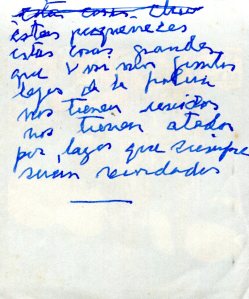 estas cosas
estas pequeñeces
estas cosas grandes
que vivimos juntos
lejos de la
nos tienen unidos
nos tienen atados
por lazos que siempre
seran recordados